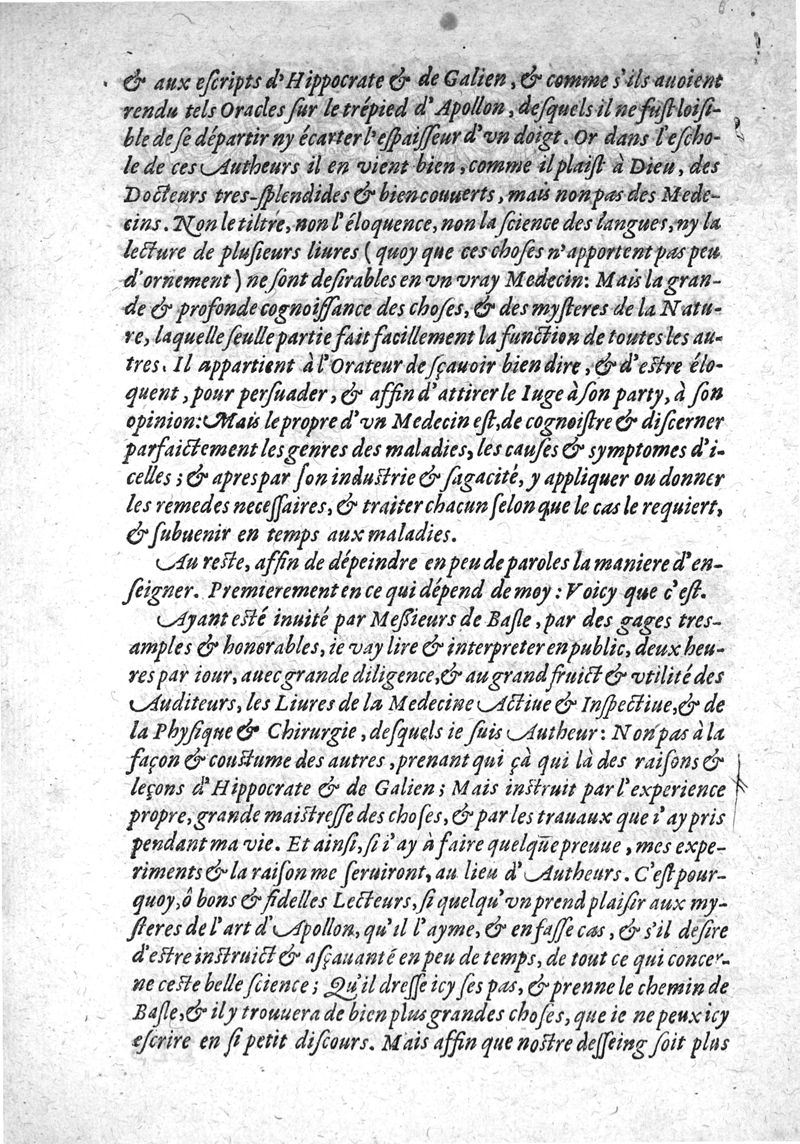 & aux escripts d'Hippocrate & de Galien, & comme s'ils auoient
rendu tels Oracles sur le trépied d'Apollon, desquels il ne fust loisi-
ble de se départir ny écarter l'espaisseur d'vn doigt. Or dans l'escho-
le de ces Autheurs il en vient bien, comme il plaist à Dieu, des
Docteurs tres-splendides & bien couuerts, mais non pas des Mede-
cins. Non le tiltre, non l'éloquence, non la science des langues, ny la
lecture de plusieurs liures (quoy que ces choses n'apportent pas peu
d'ornement) ne sont desirables en vn vray Medecin: Mais la gran-
de & profonde cognoissance des choses, & des mysteres de la Natu-
re, laquelle seulle partie fait facillement la function de toutes les au-
tres. Il appartient à l'Orateur de sçauoir bien dire, & d'estre élo-
quent, pour persuader, & affin d'attirer le Iuge à son party, à son
opinion: Mais le propre d'vn Medecin est, de cognoistre & discerner
parfaictement les genres des maladies, les causes & symptomes d'i-
celles; & apres par son industrie & sagacité, y appliquer ou donner
les remedes necessaires, & traiter chacun selon que le cas le requiert,
& subuenir en temps aux maladies.
Au reste, affin de dépeindre en peu de paroles la maniere d'en-
seigner. Premierement en ce qui dépend de moy: Voicy que c'est.
Ayant esté inuité par Messieurs de Basle, par des gages tres-
amples & honorables, ie vay lire & interpreter en public, deux heu-
res par iour, auec grande diligence, & au grand fruict & vtilité des
Auditeurs, les Liures de la Medecine Actiue & Inspectiue, & de
la Physique & Chirurgie, desquels ie suis Autheur: Non pas à la
façon & coustume des autres, prenant qui çà qui là des raisons &
leçons d'Hippocrate & de Galien; Mais instruit par l'experience
propre, grande maistresse des choses, & par les trauaux que i'ay pris
pendant ma vie. Et ainsi, si i'ay à faire quelque preuue, mes expe-
riments & la raison me seruiront, au lieu d'Autheurs. C'est pour-
quoy, ô bons & fidelles Lecteurs, si quelqu'vn prend plaisir aux my-
steres de l'art d'Apollon, qu'il l'ayme, & en fasse cas, & s'il desire
d'estre instruict & asçauanté en peu de temps, de tout ce qui concer-
ne ceste belle science; Qu'il dresse icy ses pas, & prenne le chemin de
Basle, & il y trouuera de bien plus grandes choses, que ie ne peux icy
escrire en si petit discours. Mais affin que nostre desseing soit plus